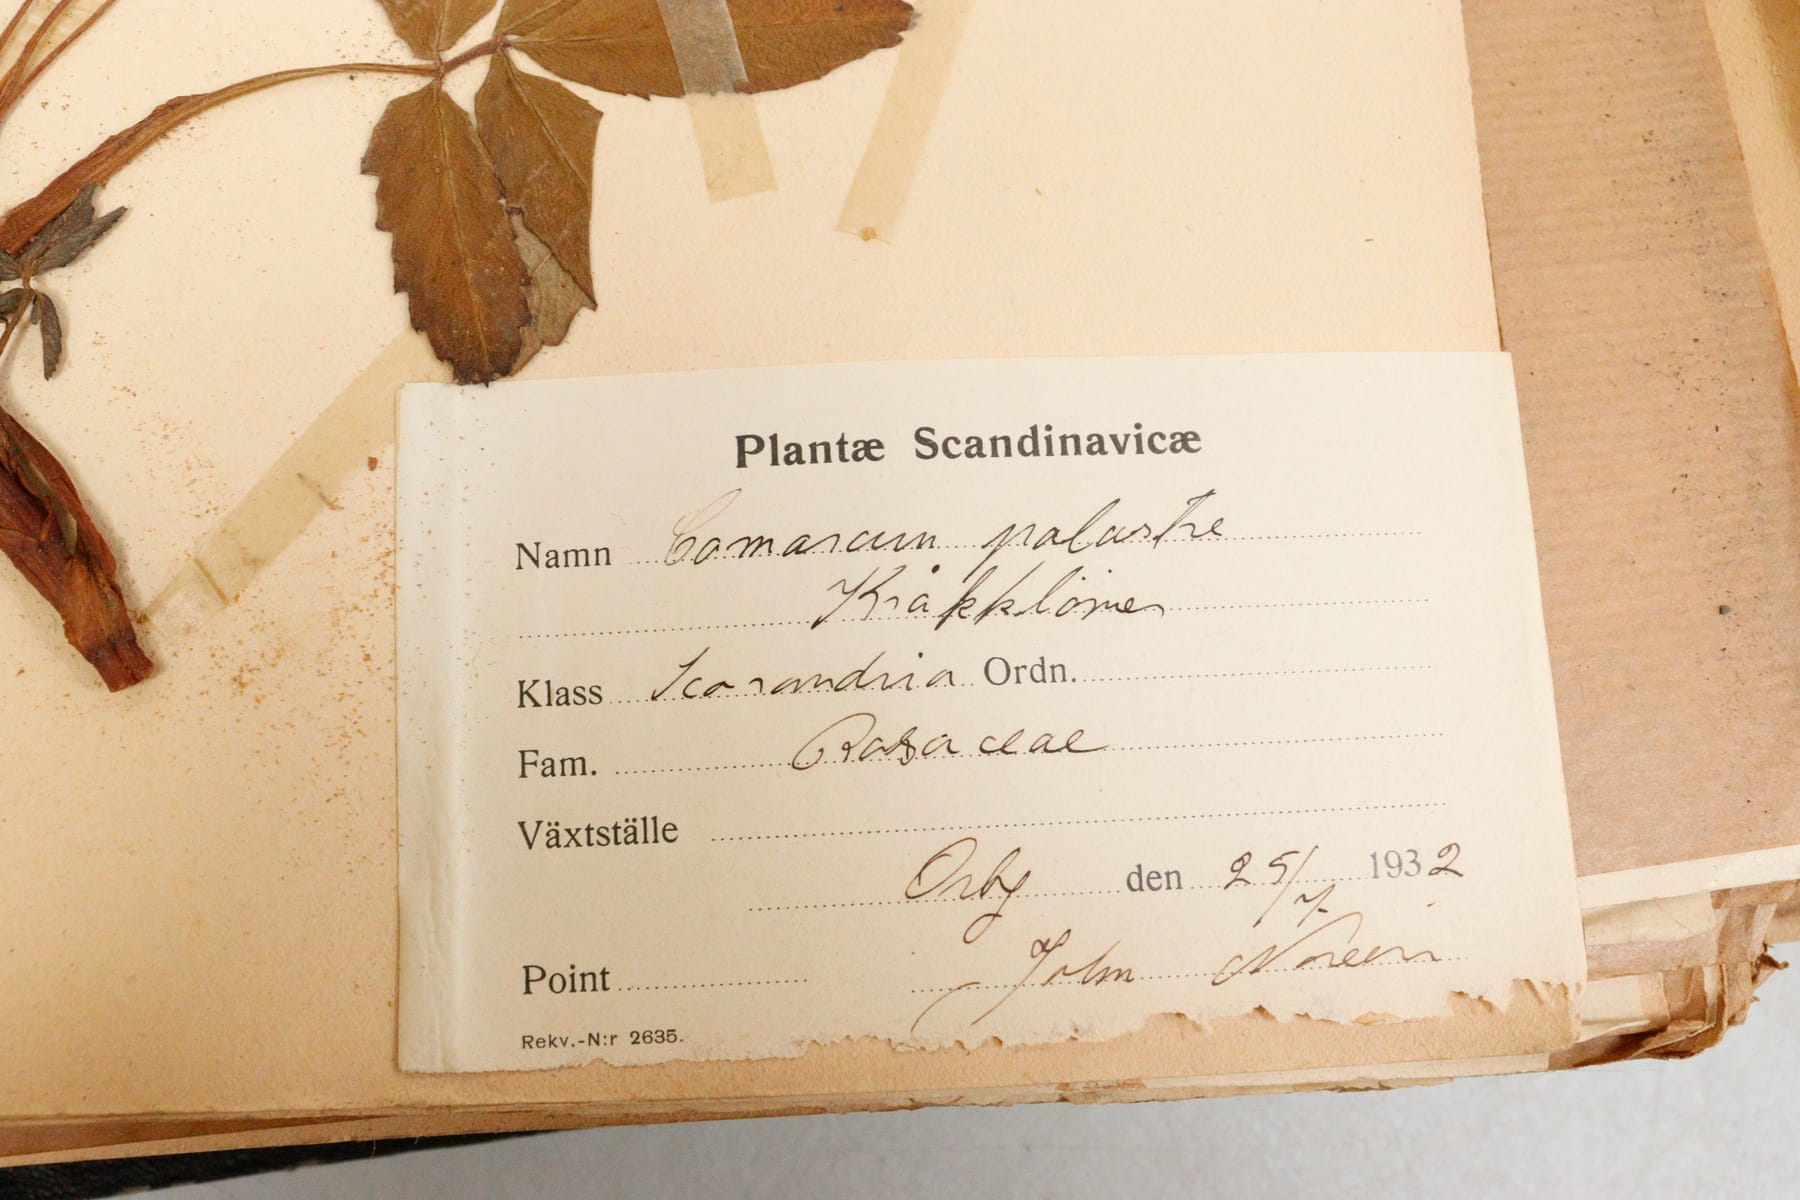 Plantæ Scandinavicæ
Namn Comarum palustre
Kråkklöver
Klass Icosandria Ordn.
Fam. Rosaceae
Växtställe
Örby den 25/7. 1932
Point John Noreen
Rekv.-N:r 2635.